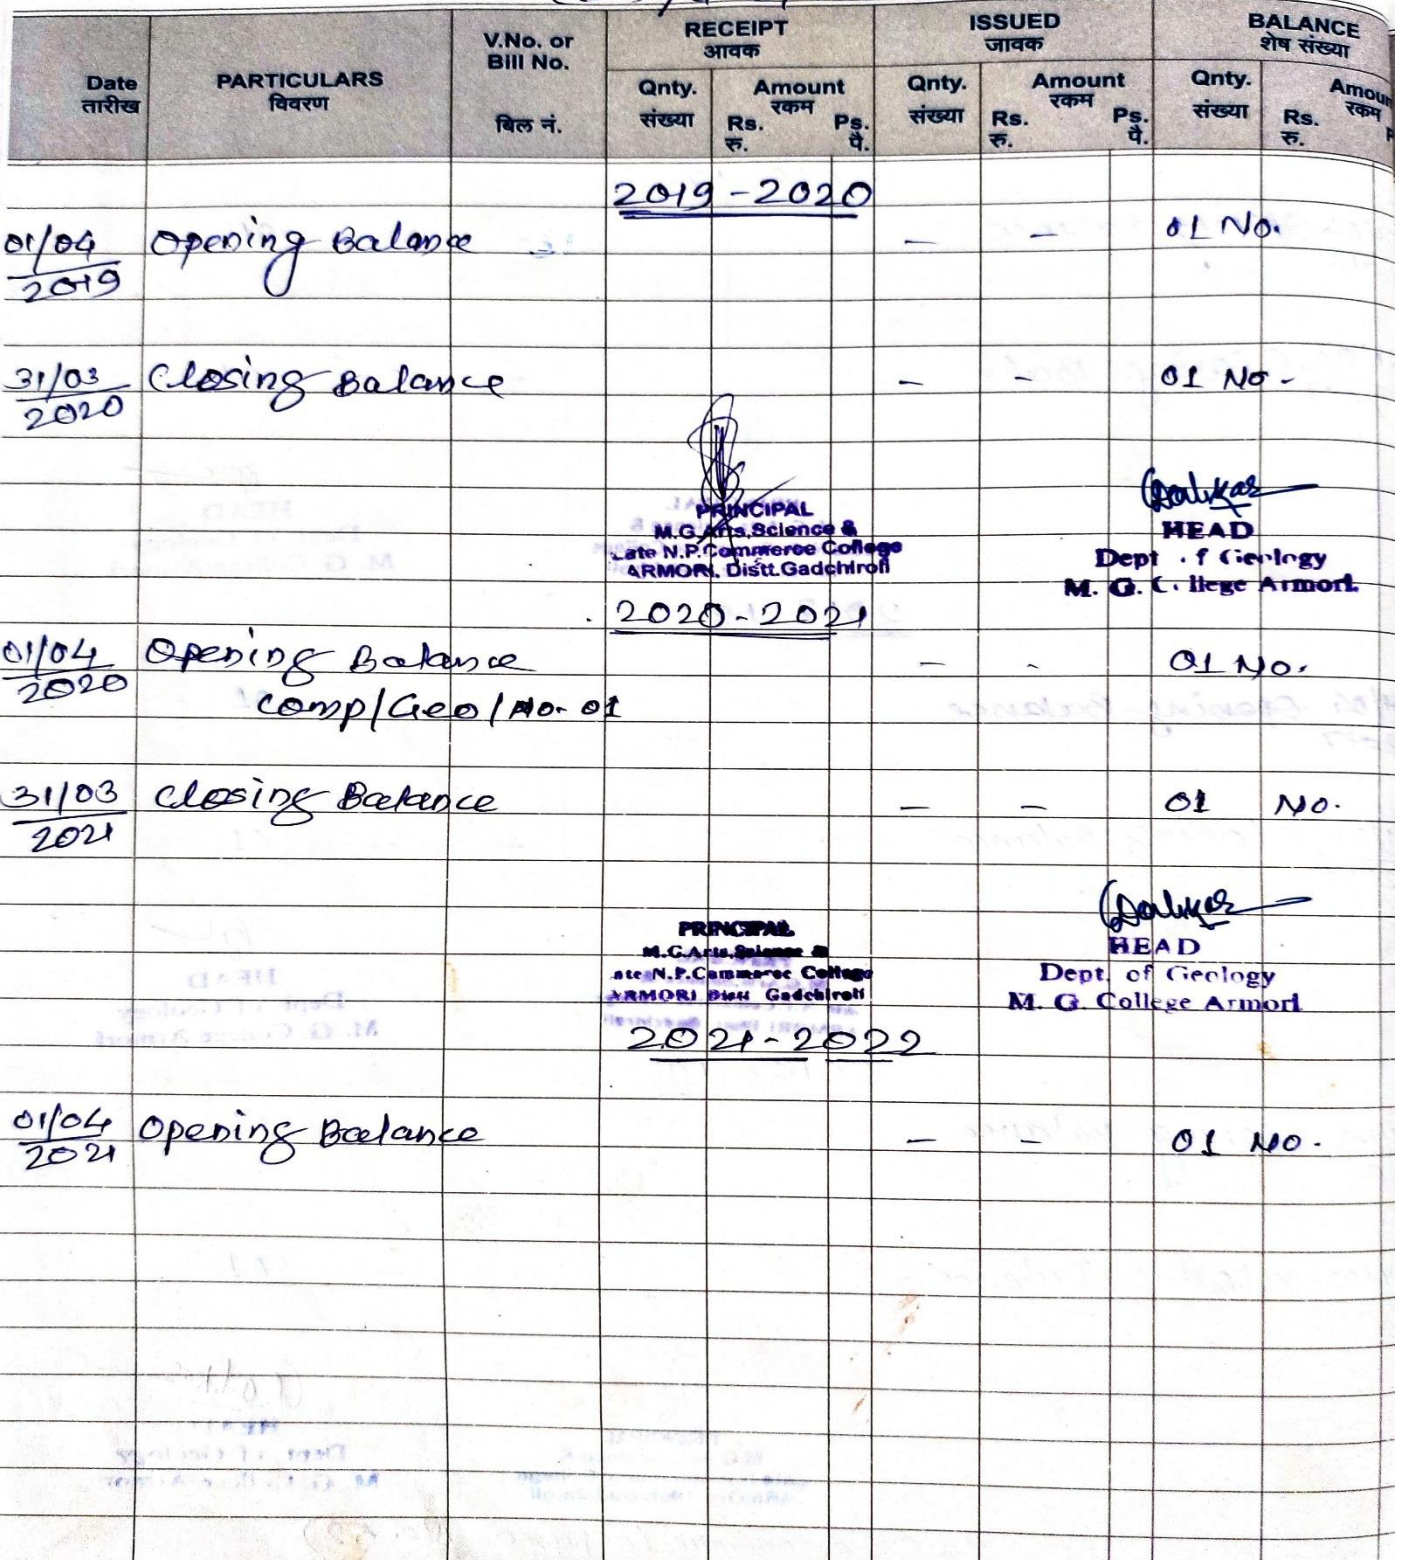 Date
तारीख
PARTICULARS
विवरण
V.No. or
Bill No.
बिल नं.
RECEIPT
आवक
Qnty.
संख्या
Amount
रकम
Rs.
रु.
Ps.
पै.
ISSUED
जावक
Qnty.
संख्या
Amount
रकम
Rs.
रु.
Ps.
पै.
BALANCE
शेष संख्या
Qnty.
संख्या
Amoun
रकम
Rs.
रु.
P
2019-2020
01/04/2019 Opening Balance – – 01 No.
31/03/2020 Closing Balance – – 01 No -
PRINCIPAL
M.G.Arts,Science &
Late N.P.Commerce College
ARMORI, Distt.Gadchiroli
HEAD
Dept . f Geology
M. G. C. llege Armori.
2020-2021
01/04/2020 Opening Balance – - 01 No.
Comp/Geo/No. 01
31/03/2021 Closing Balance – – 01 No.
PRINCIPAL
M.G.Arts,Science &
ate N.P.Commerce College
ARMORI Distt Gadchiroli
HEAD
Dept. of Geology
M. G. College Armori
2021-2022
01/04/2021 Opening Balance – – 01 No.